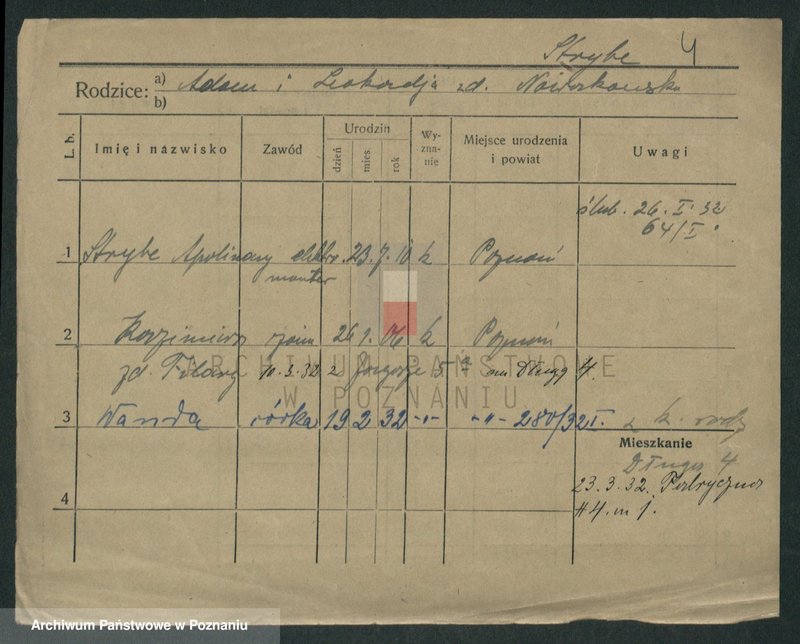 Strybe 4
Rodzice: a) Adam i Leokadja zd. Nowakowska
b)
L. b. Imię i nazwisko Zawód Urodzin dzień mies rok Wyznanie Miejsce urodzenia i powiat Uwagi
ślub. 26. I. 32
64/I.
1 Strybe Apolinary elektro. 23. 7. 10 k Poznań
monter
2 Kazimiera żona 26 1. k Poznań
zd. 10.3.32 z 3 m Długą 4.
ARCHIWUM PAŃSTWOWE
W POZNANIU
3 Wanda córka 19 2 32 -"- -"- 280/32 I. z k. rodz
Mieszkanie
Długa 4
23.3.32. Fabryczna
4
#4. m 1.
Archiwum Państwowe w Poznaniu